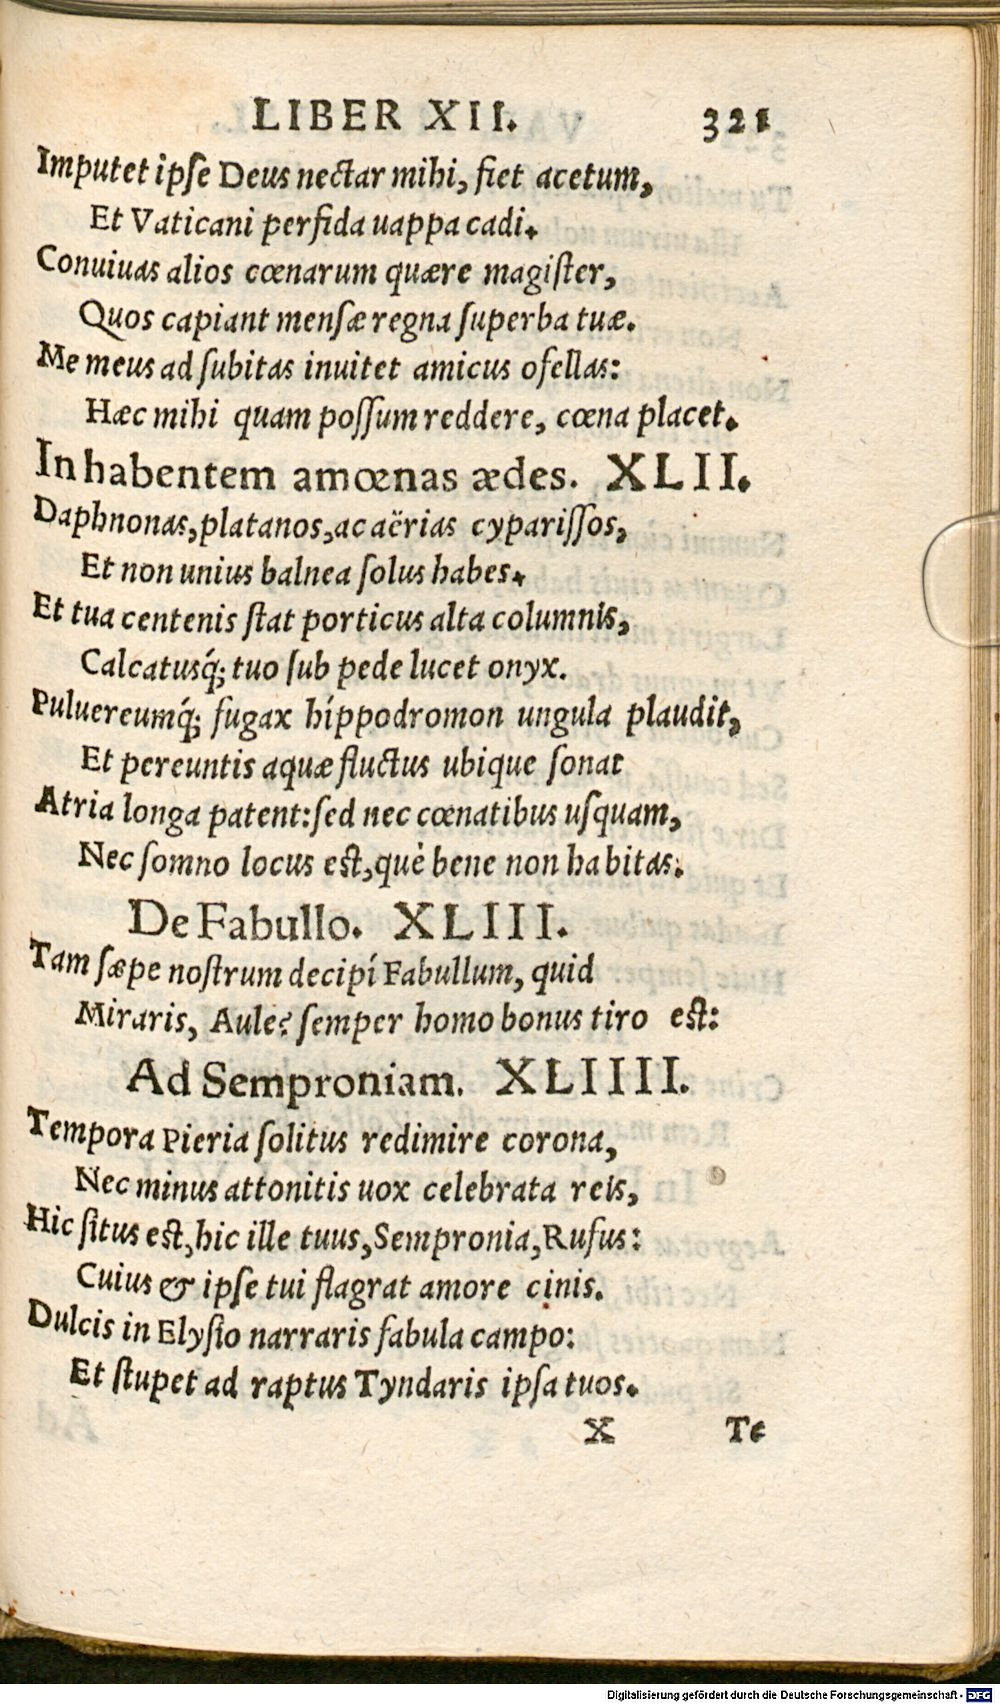 LIBER XII. 321
Imputet ipſe Deus nectar mihi, fiet acetum,
Et Vaticani perfida uappa cadi.
Conuiuas alios cœnarum quære magiſter,
Quos capiant menſæ regna ſuperba tuæ.
Me meus ad ſubitas inuitet amicus ofellas:
Hæc mihi quam poſſum reddere, cœna placet.
In habentem amœnas ædes. XLII.
Daphnonas, platanos, ac aërias cypariſſos,
Et non unius balnea ſolus habes.
Et tua centenis ſtat porticus alta columnis,
Calcatusq́; tuo ſub pede lucet onyx.
Puluereumq́; fugax hippodromon ungula plaudit,
Et pereuntis aquæ fluctus ubique ſonat
Atria longa patent: ſed nec cœnatibus uſquam,
Nec ſomno locus eſt, què bene non habitas.
De Fabullo. XLIII.
Tam ſæpe noſtrum decipi Fabullum, quid
Miraris, Aule? ſemper homo bonus tiro eſt:
Ad Semproniam. XLIIII.
Tempora Pieria ſolitus redimire corona,
Nec minus attonitis uox celebrata reis,
Hic ſitus eſt, hic ille tuus, Sempronia, Rufus:
Cuius & ipſe tui flagrat amore cinis.
Dulcis in Elyſio narraris fabula campo:
Et ſtupet ad raptus Tyndaris ipſa tuos.
X Te
Digitalisierung gefördert durch die Deutsche Forschungsgemeinschaft - DFG